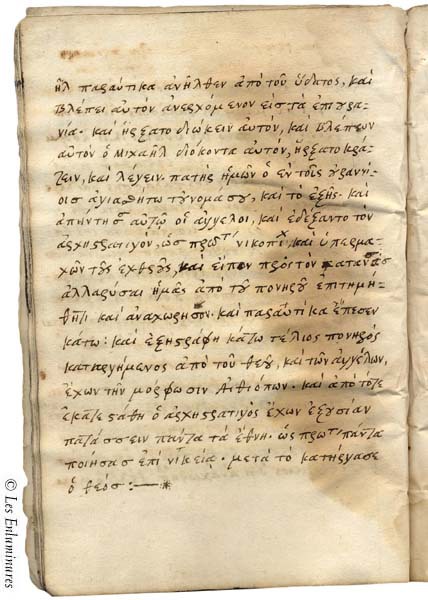 ὴλ παραύτικα ἀνῆλθεν ἀπὸ τοῦ ὕδατος, καὶ
βλέπει αὐτὸν ἀνερχόμενον εἰς τὰ ἐπουρά-
νια. καὶ ἤρξατο διώκειν αὐτόν, καὶ βλέπων
αὐτὸν ὁ μιχαὴλ διόκοντα αὐτὸν, ἤρξατο κρά-
ζειν, καὶ λέγειν. πατὴρ ἡμῶν ὁ ἐν τοῖς οὐρανοῖ-
οισ ἁγιασθήτω τὸ ὄνομά σου, καὶ τὸ ἑξῆς. καὶ
ἀπήντησ αὐτῷ οἱ ἄγγελοι, καὶ ἐδέξαντο τὸν
ἀρχηστράτιγον, ὡς πρωτ νικοπι καὶ ὑπερμα-
χῶν τοὺς ἐχθρούς, καὶ εἶπον πρὸς τὸν σατανᾶν
ἀλλαρύσαι ἡμᾶς ἀπὸ τοῦ πονηροῦ ἐπιτημη-
καὶ ἀναχωρησον. καὶ παραύτικα ἔπεσεν
κάτω: καὶ κάτω τέλιος πονηρὸς
κατηργημένος ἀπὸ τοῦ θεοῦ, καὶ τῶν ἀγγέλων,
ἔχων τὴν μόρφωσιν Αἰθιόπων. καὶ ἀπὸ τότε
ἐκατεστάθη ὁ ἀρχηστράτιγὸς ἔχων ἐξουσίαν
πατάσσειν πάντα τὰ ἔθνη. ὡς πρωτ πάντα
ποιήσας ἐπὶ νίκείᾳ. μετὰ τὸ κατηργασε
ὁ θεός :
© Les Enluminures